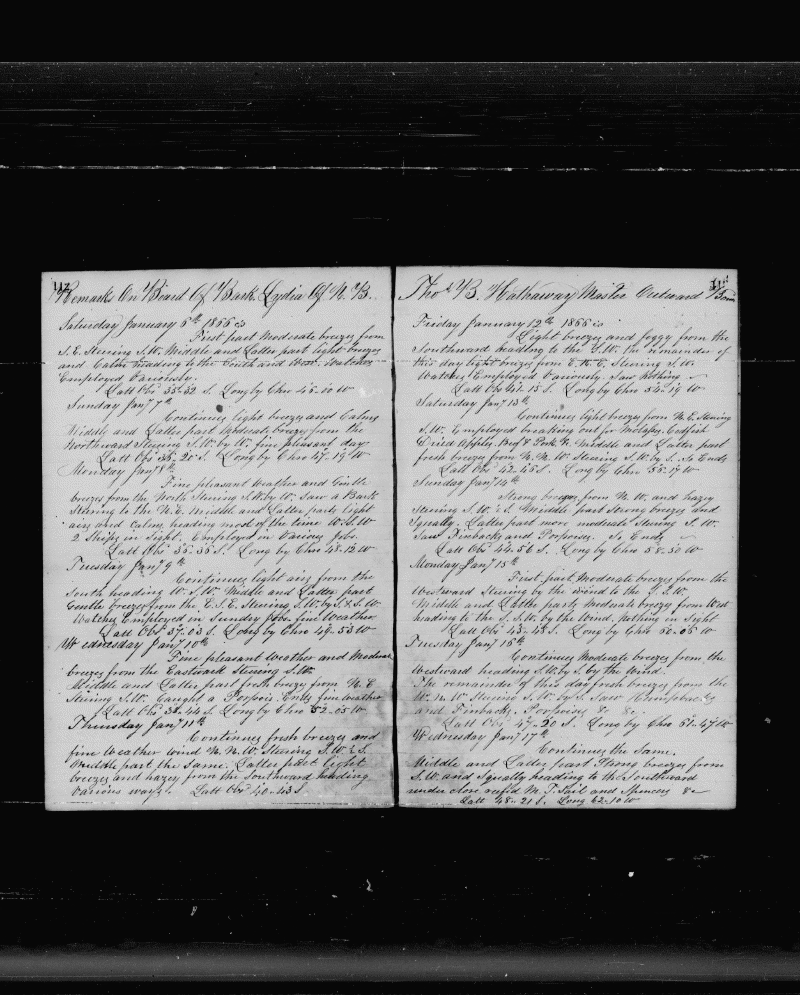 Remarks On Board Of Bark Lydia Of N. B.
Saturday January 6th 1866
First part Moderate breezes from
S.E. Steering S.W. Middle and Latter part light breezes
and Calm heading to the South and
Employed Variously.
Latt Obs Long by Chro W
Sunday Jany 7th
Continues light breezes and Calms
Middle and Latter part Moderate breezes from the
Northward Steering S.W. by W. fine pleasant day
Latt Obs 35-20 S. Long by Chro 47-19 W
Monday Jany 8th
Fine pleasant Weather and Gentle
breezes from the North Steering S.W. by W. Saw a Bark
Steering to the N.E. Middle and Latter parts light
airs and Calms, heading most of the time W.S.W
2 Ships in Sight. Employed in Various Jobs.
Latt Obs 35-56 S. Long by Chro 48-12 W
Tuesday Jany 9th
Continues light airs from the
South heading W. S. W. Middle and Latter part
Gentle breezes from the E.S.E. Steering S.W. by S. & S.W.
Watches Employed in Sundry Jobs. fine Weather
Latt Obs 37-03 S. Long by Chro 49-53 W
Wednesday Jany 10th
Fine pleasant Weather and Moderate
breezes from the Eastward Steering S.W.
Middle and Latter part fresh breezes from N.E
Steering S.W. Caught a Porpois. Ends fine Weather
Latt Obs 38-44 S. Long by Chro 52-05 W
Thursday Jany 11th
Continues fresh breezes and
fine Weather Wind N.N.W. Steering S.W. & S.
Middle part the Same. Latter part light
breezes and hazey from the Southward heading
Various ways. Latt Obs 40-43 S
Thos B. Hathaway Master Outward Bound
Friday January 12th 1866
Light breezes and foggy from the
Southward heading to the S.W. the remainder of
this day light breezes from E.N.E. Steering S.W.
Watches Employed Variously. Saw Nothing
Latt Obs 41-15 S. Long by Chro 54-19 W
Saturday Jany 13th
Continues light breezes from N.E. Steering
S.W. Employed breaking out for Molasses, Codfish
Dried Apples, Beef & Pork &c. Middle and Latter part
fresh breezes from N.N.W. Steering S.W. by S. So Ends
Latt Obs 42-45 S. Long by Chro 55-17 W
Sunday Jany 14th
Strong breezes from N.W. and hazey
Steering S.W. & S. Middle part Strong breezes and
Squally. Latter part more moderate Steering S.W.
Saw Finbacks and Porpoises. So Ends
Latt Obs 44-56 S. Long by Chro 58-30 W
Monday Jany 15th
First part Moderate breezes from the
Westward Steering by the wind to the S.S.W.
Middle and Latter parts Moderate breezes from West
heading to the S.S.W. by the Wind. Nothing in Sight
Latt Obs 45-48 S. Long by Chro 60-06 W
Tuesday Jany 16th
Continues Moderate breezes from the
Westward heading S.W. by S. by the Wind.
The remainder of this day fresh breezes from the
N.W. Steering S.W. by S. Saw Humpbacks
and Finbacks. Porpoises &c &c.
Latt Obs 47-20 S. Long by Chro 61-47 W
Wednesday Jany 17th
Continues the Same.
Middle and Latter part Strong breezes from
S.W. and Squally heading to the Southward
under close reefd M. T. Sail and Spencers &c
Latt 48-21 S. Long 62-10 W